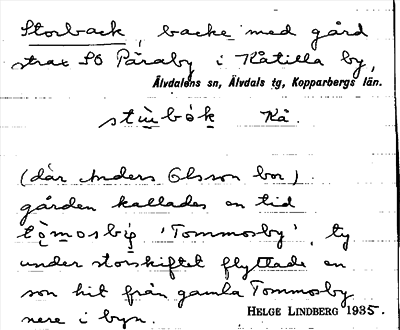 Storback, backe med gård
strax SO Påraby i Kåtilla by,
Älvdalens sn, Älvdals tg, Kopparbergs län.
Kå.
(där Anders Olsson bor)
gården kallades en tid
'Tommosby', ty
under storskiftet flyttade en
son hit från gamla Tommosby
nere i byn.
HELGE LINDBERG 1935.